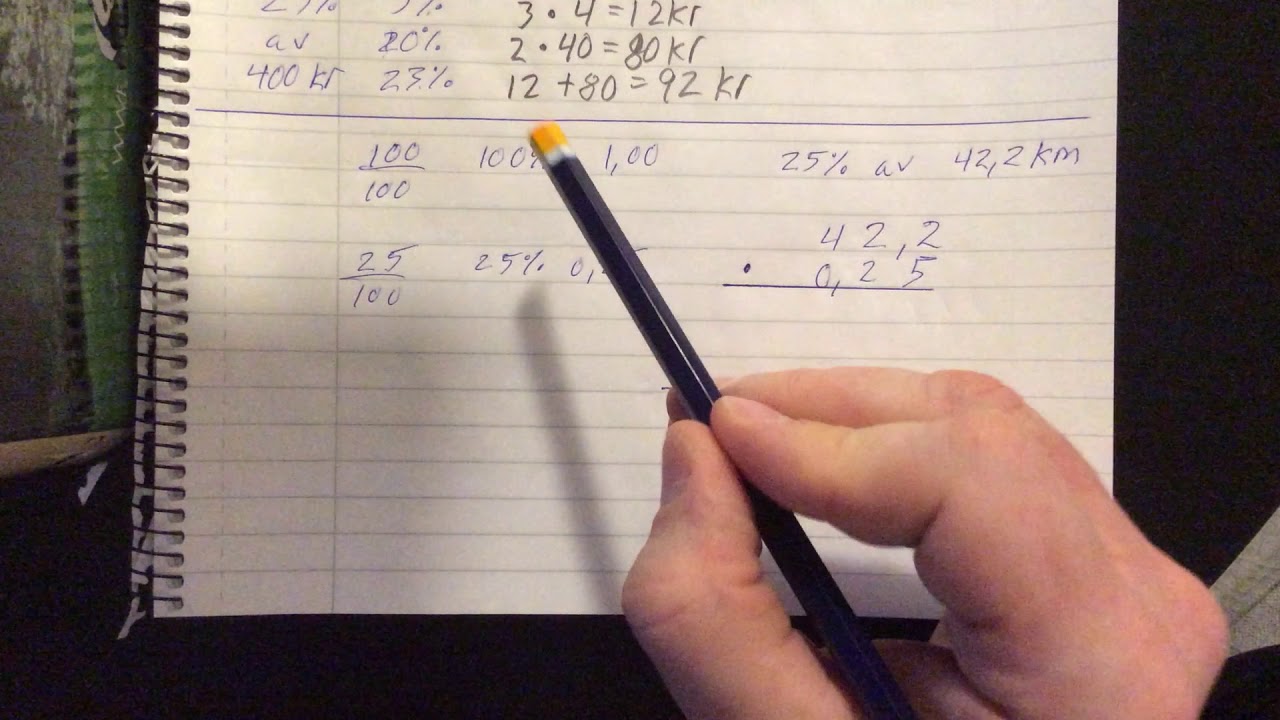 3 • 4 = 12 kr
av 20% 2 • 40 = 80 kr
400 kr 23% 12 + 80 = 92 kr
100/100 100% 1,00 25% av 42,2 km
42,2
25/100 25% 0, • 0,25